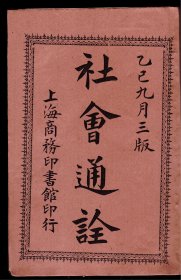 乙巳九月三版
社會通詮
上海商務印書館印行